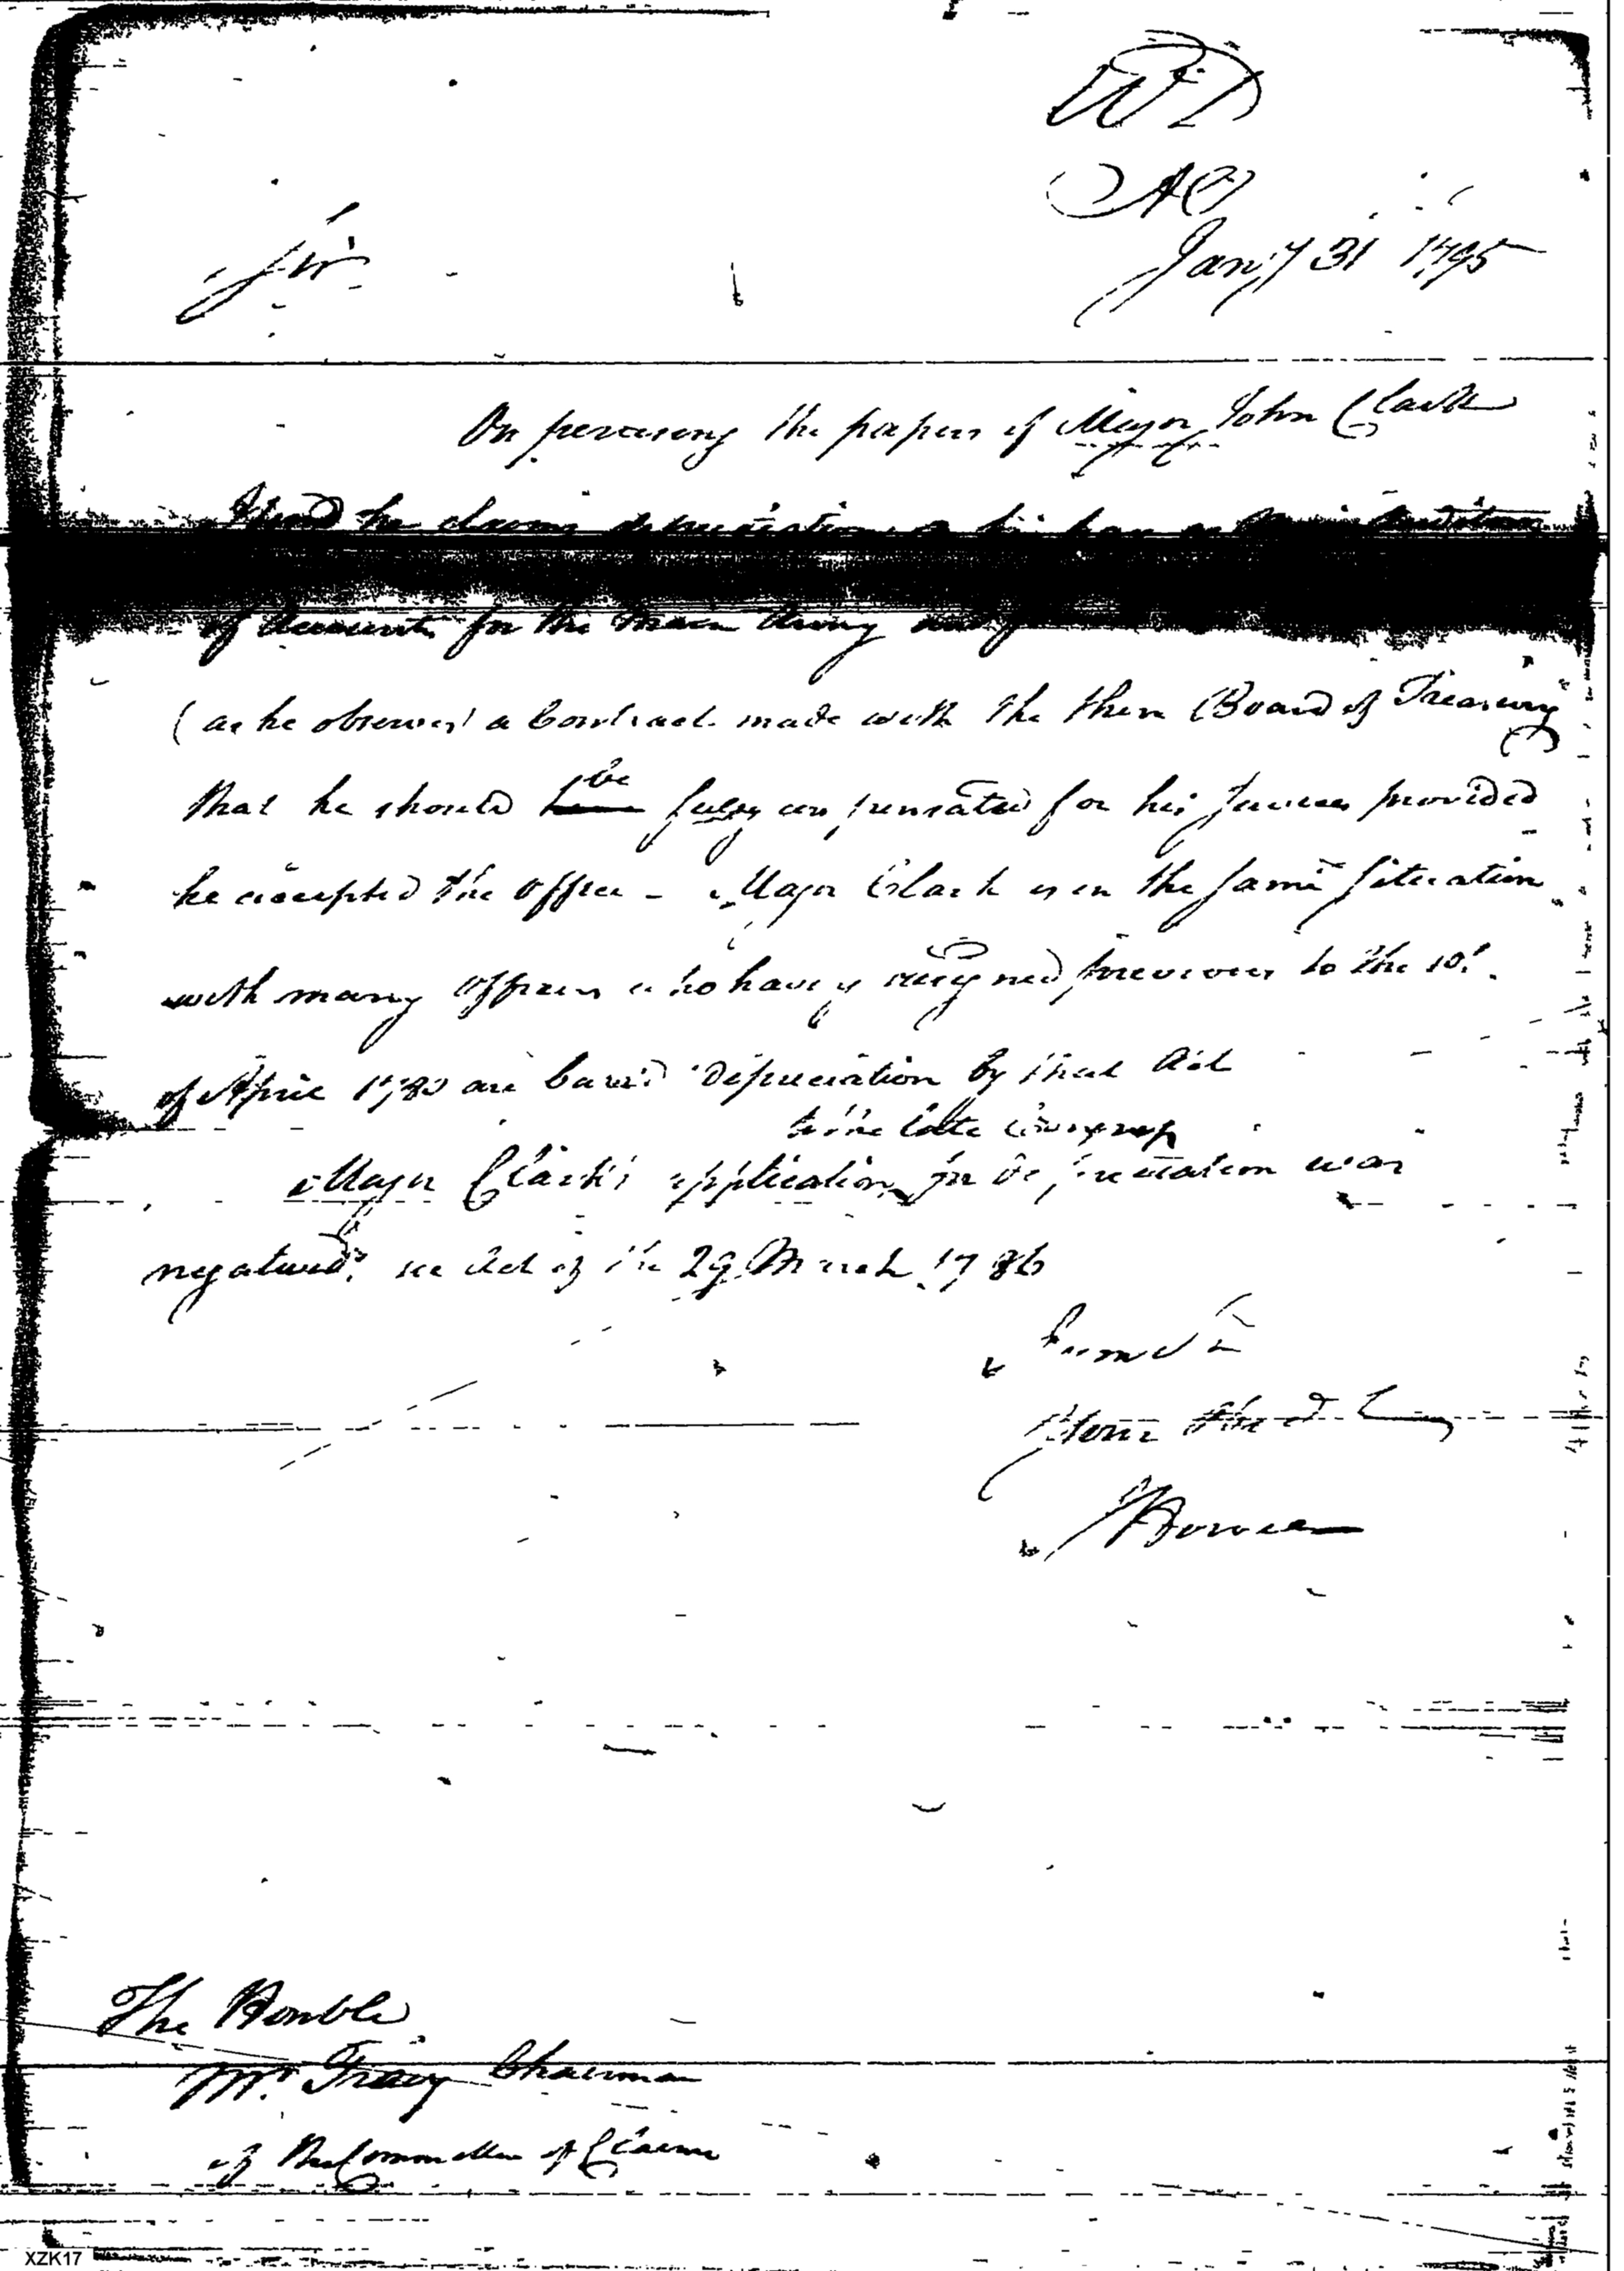 WD
AO
Jany 31 1795
Sir
On perusing the papers of Major John Clark
I find he claims depreciation on his pay as Auditor
of Accounts for the Main Army
(as he observes) a Contract made with the then Board of Treasury
that he should be fully compensated for his services provided
he accepted the office - Major Clark is in the same situation
with many officers who having resigned previous to the 10t.
of April 1780 are barr'd depreciation by that Act
to the late Congress
Major Clark's application for depreciation was
negatived. see Act of the 29 March 1786
I am Sir
Your
J Howell
The Honble
Mr. Tracy Chairman
of the Committee of Claims
XZK17